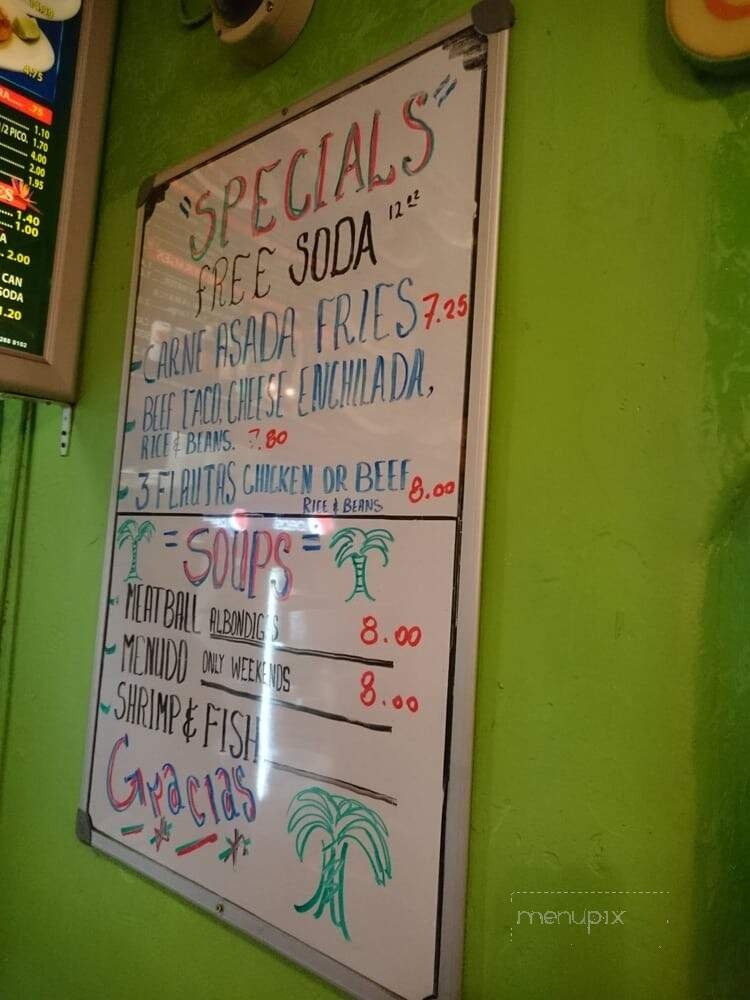 4.75
RA..... .75
1.10
1/2 PICO. 1.70
4.00
2.00
1.95
ES
1.40
1.00
A
2.00
CAN
SODA
1.20
268 8102
"SPECIALS"
FREE SODA 12 oz
- CARNE ASADA FRIES 7.25
- BEEF TACO, CHEESE ENCHILADA,
RICE & BEANS. 7.80
- 3 FLAUTAS CHICKEN OR BEEF 8.00
RICE & BEANS
= SOUPS =
- MEATBALL ALBONDIGAS 8.00
- MENUDO ONLY WEEKENDS 8.00
- SHRIMP & FISH
Gracias
menupix